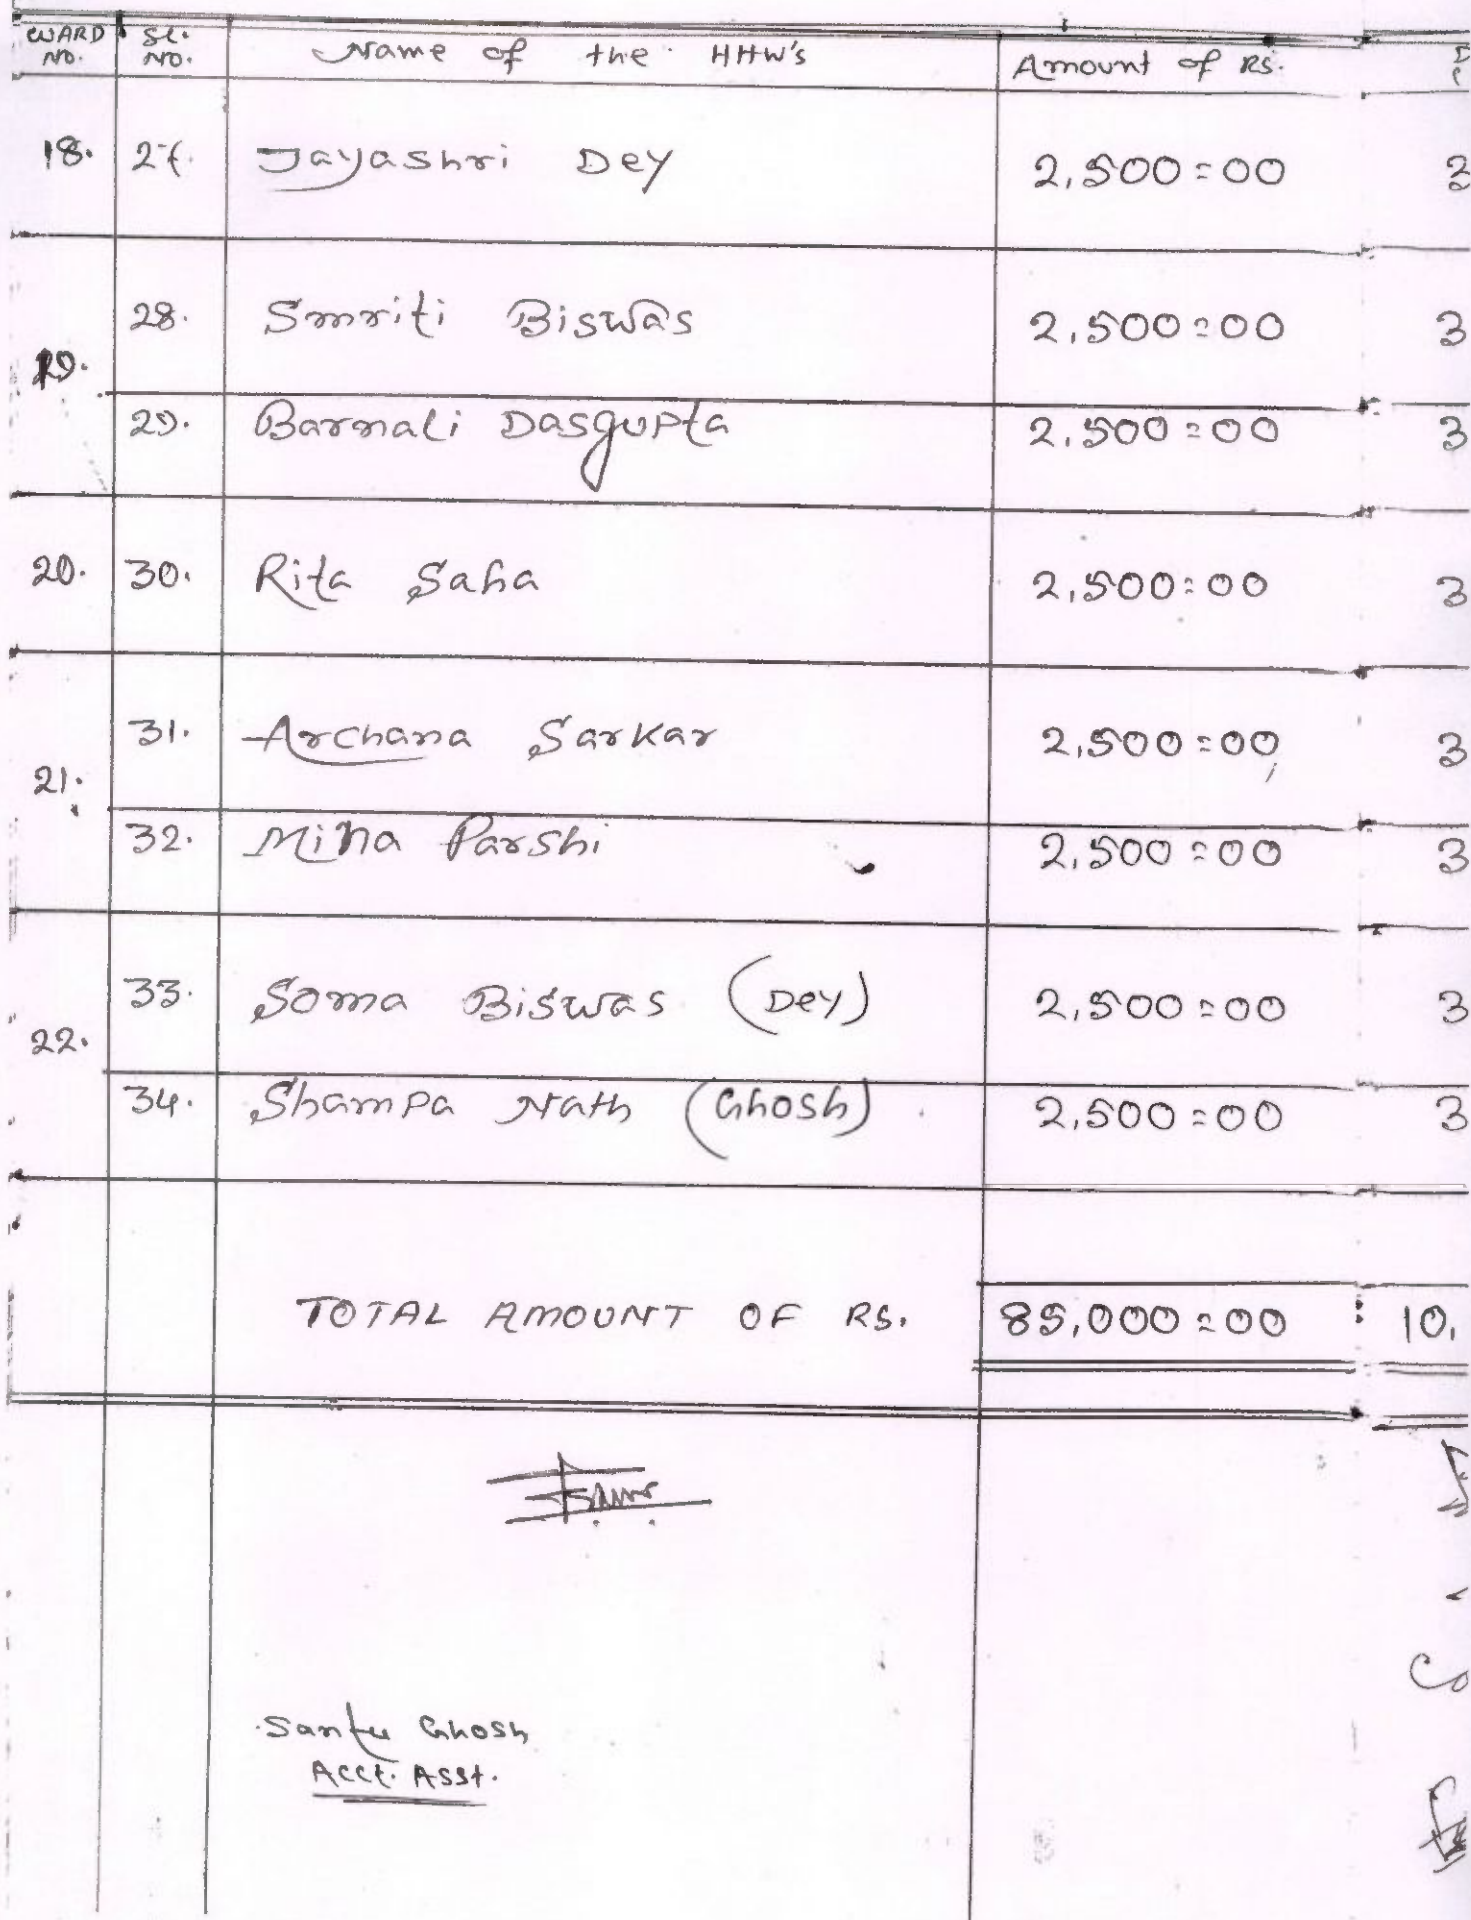 WARD NO. SL. NO. Name of the HHW's Amount of RS.
18. 27. Jayashri Dey 2,500=00 3
28. Smriti Biswas 2,500=00 3
19.
29. Barnali Dasgupta 2,500=00 3
20. 30. Rita Saha 2,500=00 3
31. Archana Sarkar 2,500=00 3
21.
32. Mina Parshi 2,500=00 3
33. Soma Biswas (Dey) 2,500=00 3
22.
34. Shampa Nath (Ghosh) 2,500=00 3
TOTAL AMOUNT OF RS. 85,000=00 10,
Santu Ghosh
Acct. Asst.